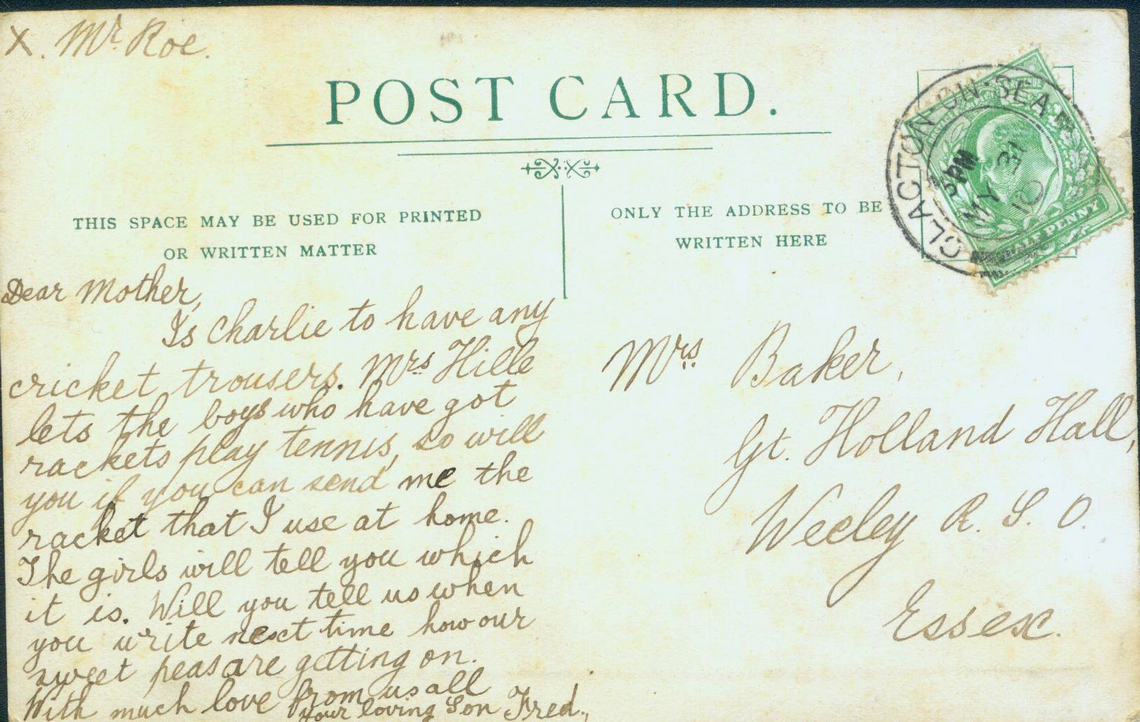 X. Mr. Roe.
POST CARD.
THIS SPACE MAY BE USED FOR PRINTED
OR WRITTEN MATTER
Dear Mother,
Is Charlie to have any
cricket trousers. Mrs Hille
lets the boys who have got
rackets play tennis, so will
you if you can send me the
racket that I use at home.
The girls will tell you which
it is. Will you tell us when
you write next time how our
sweet peas are getting on.
With much love from us all
Your loving Son Fred.,
ONLY THE ADDRESS TO BE
WRITTEN HERE
CLACTON-ON-SEA
MY 31
10
PENNY
Mrs Baker,
Gt. Holland Hall,
Weeley R. S. O.
Essex.